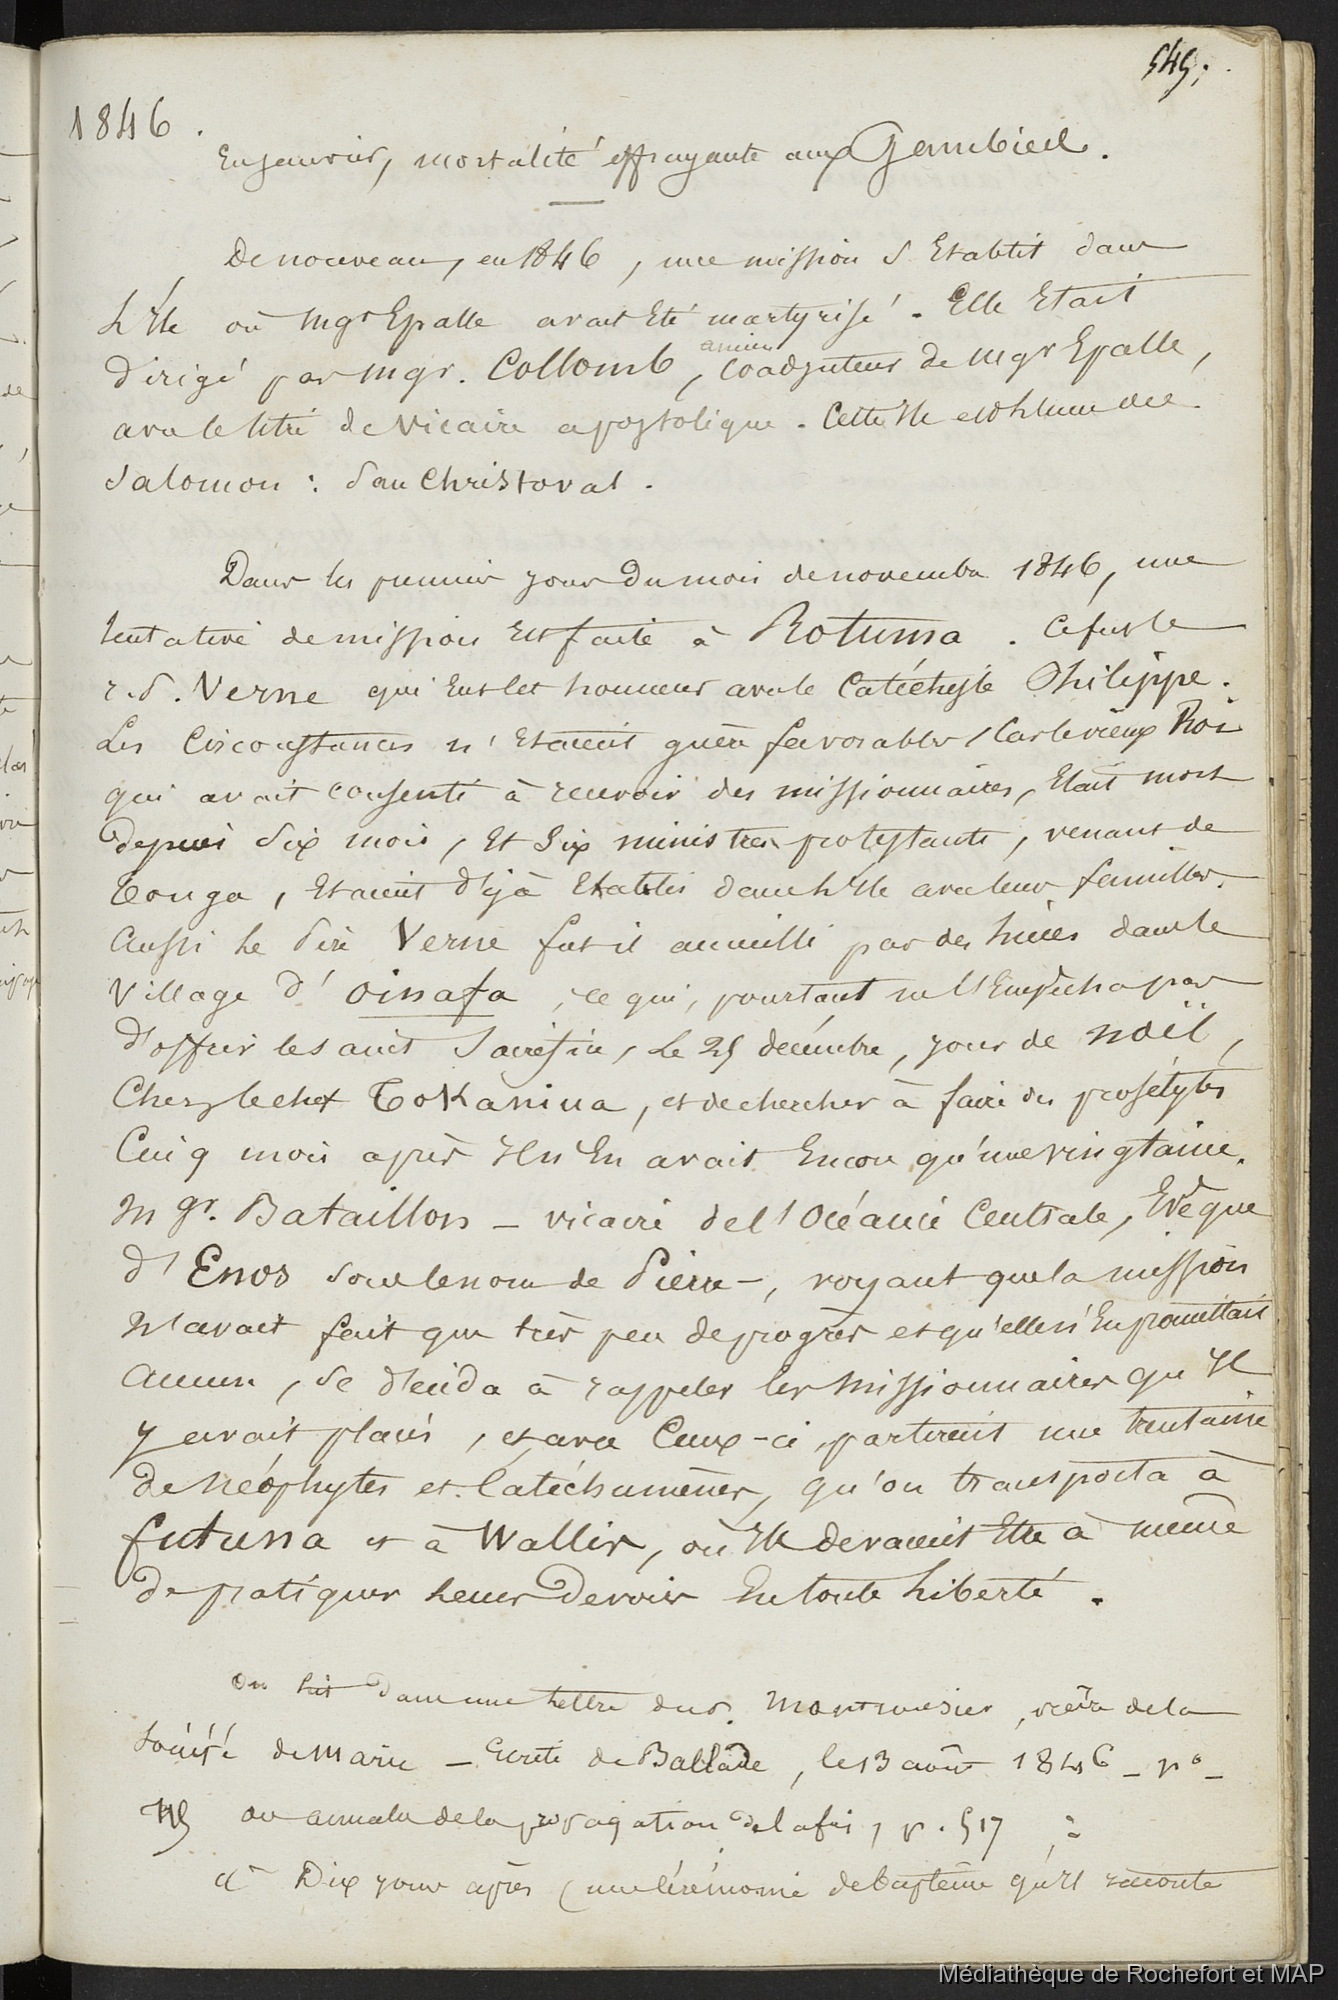 545.
1846.
En janvier, mortalité effrayante aux Gambier.
De nouveau, en 1846, une mission s'établit dans
l'île où Mgr Epalle avait été martyrisé. Elle était
dirigé par Mgr. Collomb, ancien coadjuteur de Mgr Epalle,
avec le titre de vicaire apostolique. Cette île est l'une des
Salomon : San Christoval.
Dans les premiers jours du mois de novembre 1846, une
tentative de mission est faite à Rotuma. Ce fut le
r. p. Verne qui eut cet honneur avec le catéchiste Philippe.
Les circonstances n'étaient guère favorables, car le vieux Roi
qui avait consenti à recevoir des missionnaires, était mort
depuis six mois, et six ministres protestants, venant de
Tonga, étaient déjà établis dans l'île avec leurs familles.
Aussi le Père Verne fut-il accueilli par des huées dans le
village d'Oinafa, ce qui, pourtant ne l'empêcha pas
d'offrir le saint sacrifice, le 25 décembre, jour de noël,
chez le chef Tokaniua, et de chercher à faire des prosélytes
Cinq mois après il n'en avait encore qu'une vingtaine.
Mgr. Bataillon – vicaire de l'Océanie Centrale, Evêque
d'Enos sous le nom de Pierre –, voyant que la mission
n'avait fait que très peu de progrès et qu'elle n'en promettait
aucun, se décida à rappeler les missionnaires qu'il
y avait placés, et avec ceux-ci partirent une trentaine
de néophytes et catéchumènes, qu'on transporta à
futuna et à Wallis, où ils devaient être à même
de pratiquer leurs devoirs en toute liberté.
On lit dans une lettre du p. Montrouzier, de la
Société de Marie – écrite de Ballade, le 13 août 1846 – n° –
115 des annales de la propagation de la foi, p. 517 :
« Dix jours après (une cérémonie de baptême qu'il raconte
Médiathèque de Rochefort et MAP